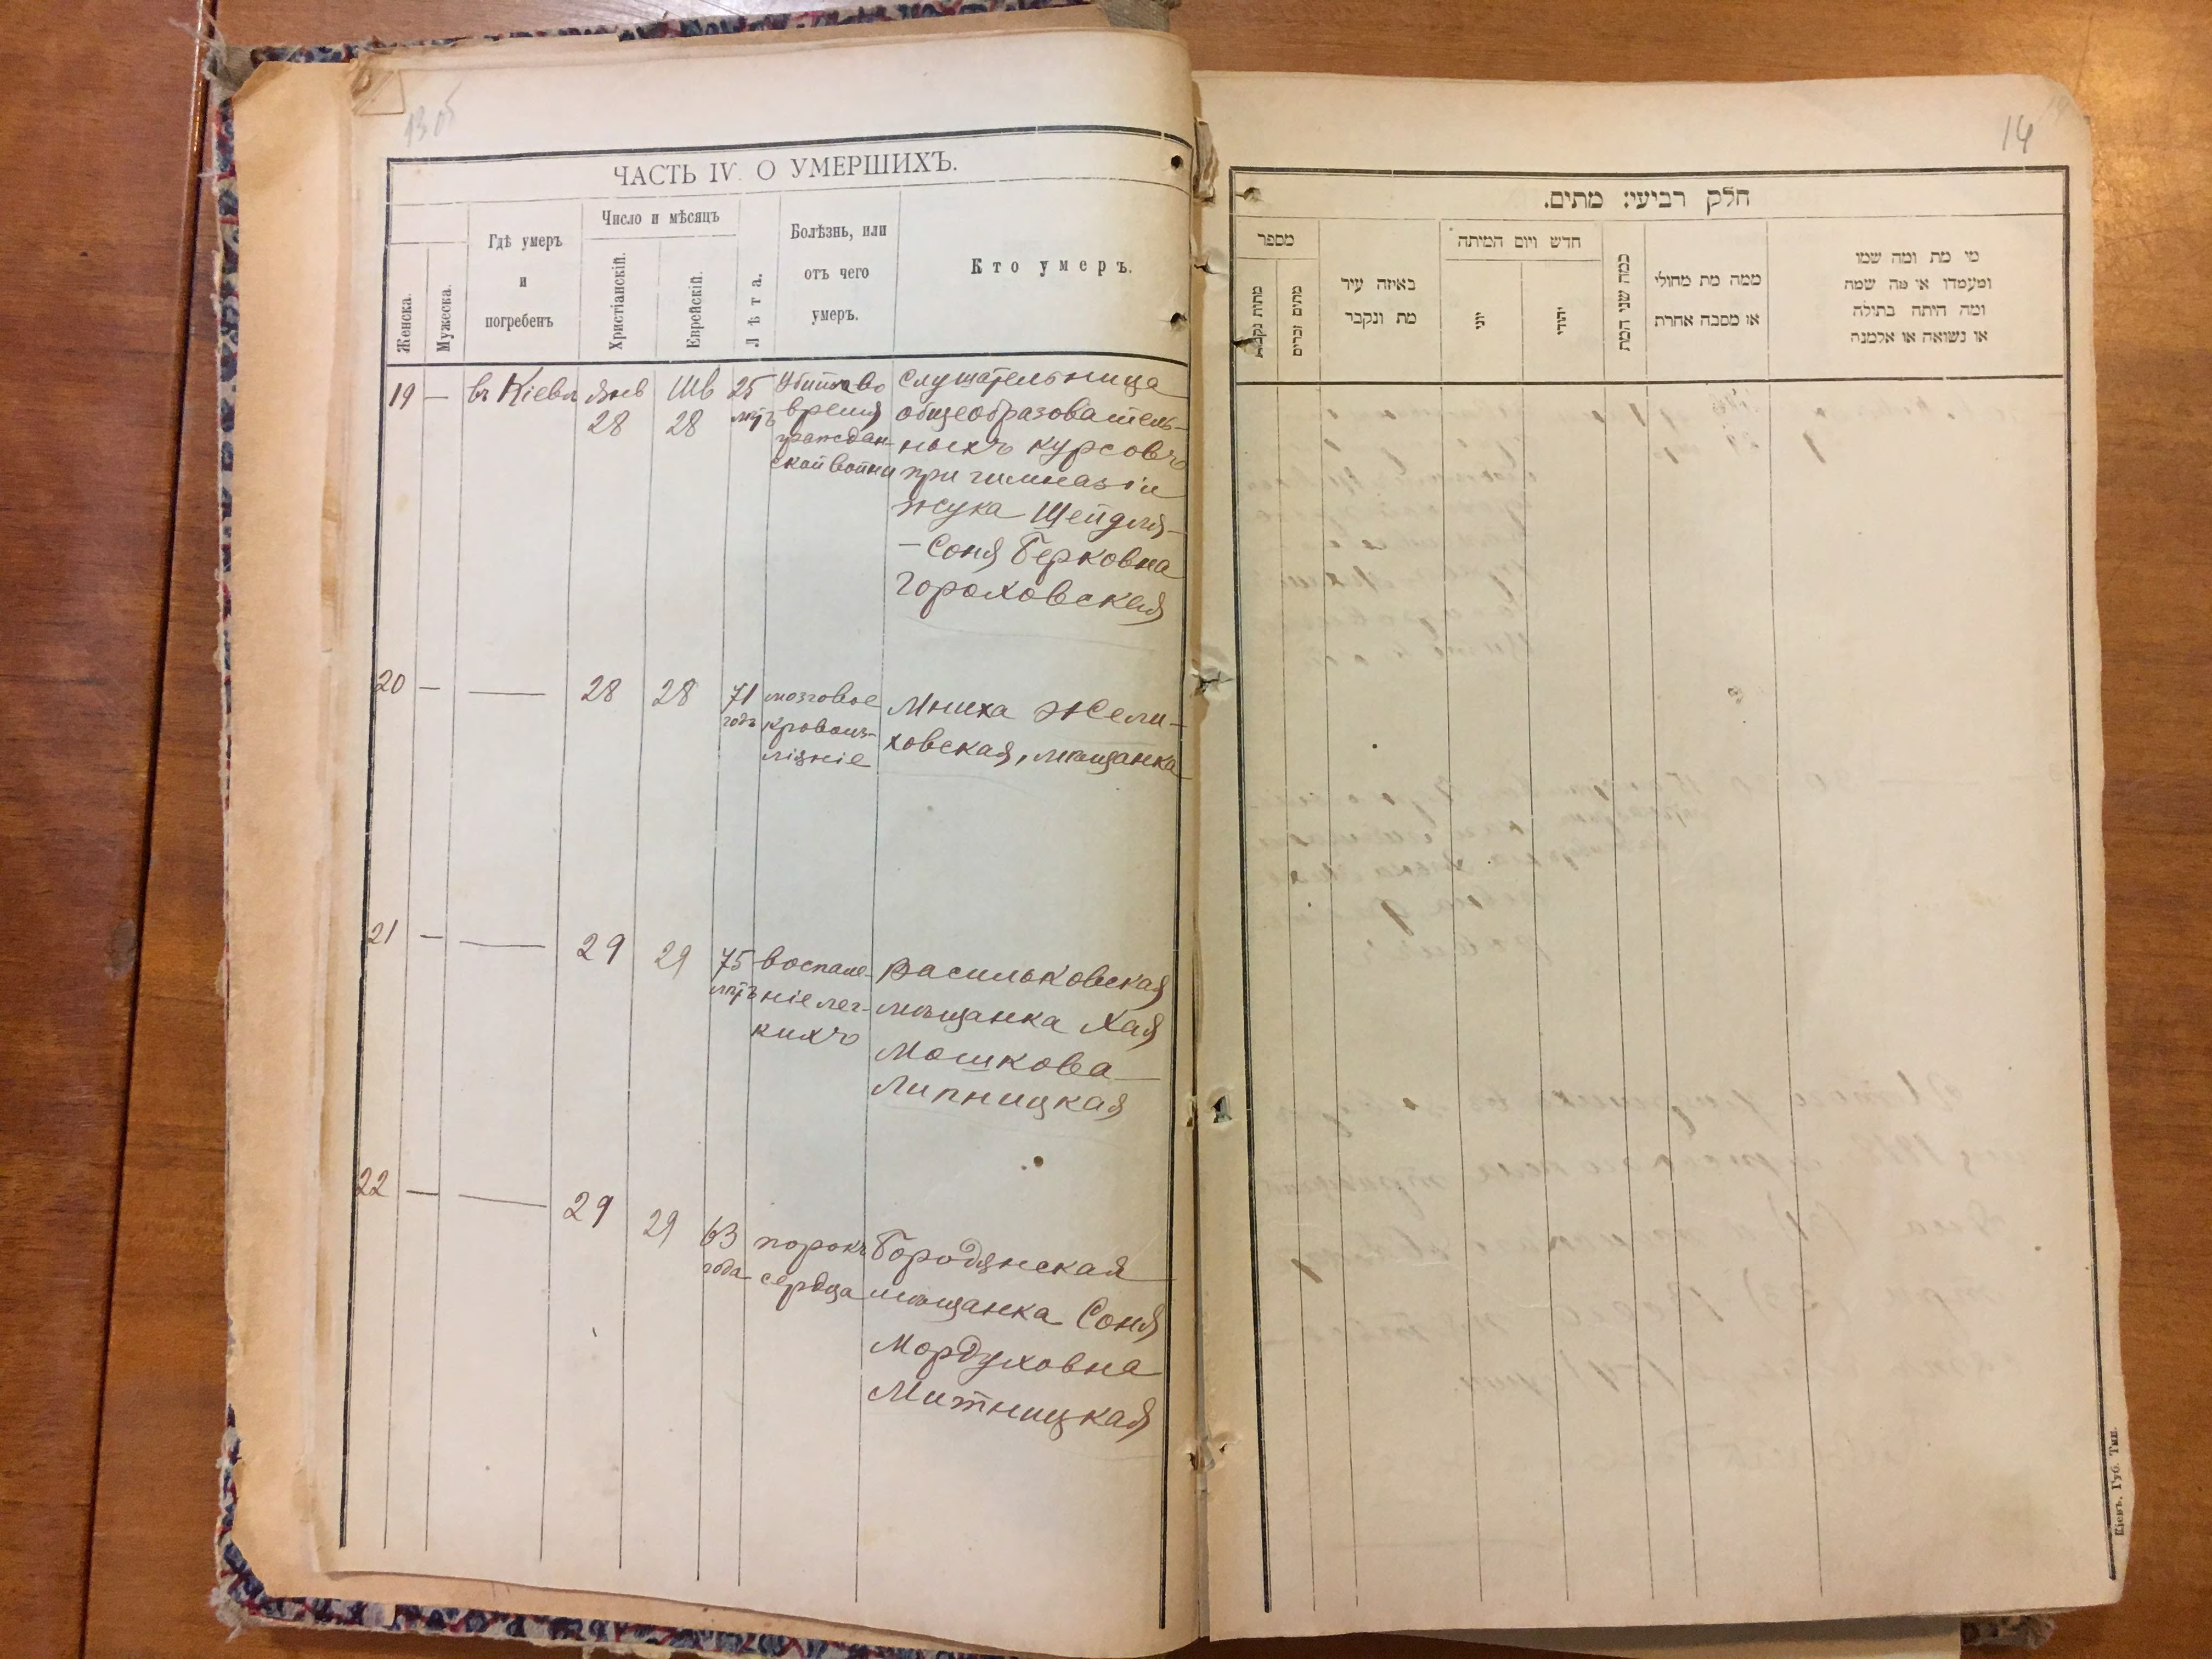 13 об
ЧАСТЬ IV. О УМЕРШИХЪ.
Женска.
Мужеска.
Гдѣ умеръ
и
погребенъ
Число и мѣсяцъ
Христіанскій.
Еврейскій.
Лѣта.
Болѣзнь, или
отъ чего
умеръ.
Кто умеръ.
19 — въ Кіевѣ Янв 28 Шв 28 25 лѣтъ
Убита во
время
граждан-
ской войны
слушательница
общеобразователь-
ныхъ курсовъ
при гимназіи
Жука Шейдля-
-Соня Берковна
Гороховская
20 — — 28 28 71 годъ
мозговое
кровоиз-
ліяніе
Мниха Жели-
ховская, мѣщанка
21 — — 29 29 75 лѣтъ
воспале-
ніе лег-
кихъ
Васильковская
мѣщанка Хая
Мошкова
Липницкая
22 — — 29 29 63 года
порокъ
сердца
Городянская
мѣщанка Соня
Мордуховна
Митницкая
14
חלק רביעי: מתים.
מספר
מתות נקבות
מתים זכרים
באיזה עיר
מת ונקבר
חדש ויום המיתה
יוני
יהודי
כמה שני המת
ממה מת מחולי
או מסבה אחרת
מי מת ומה שמו
ומעמדו או מה שמה
ומה היתה בתולה
או נשואה או אלמנה
Кіевъ. Губ. Тип.